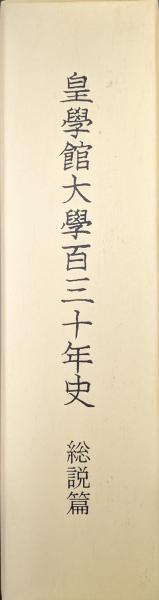 皇學館大學百三十年史 総説篇